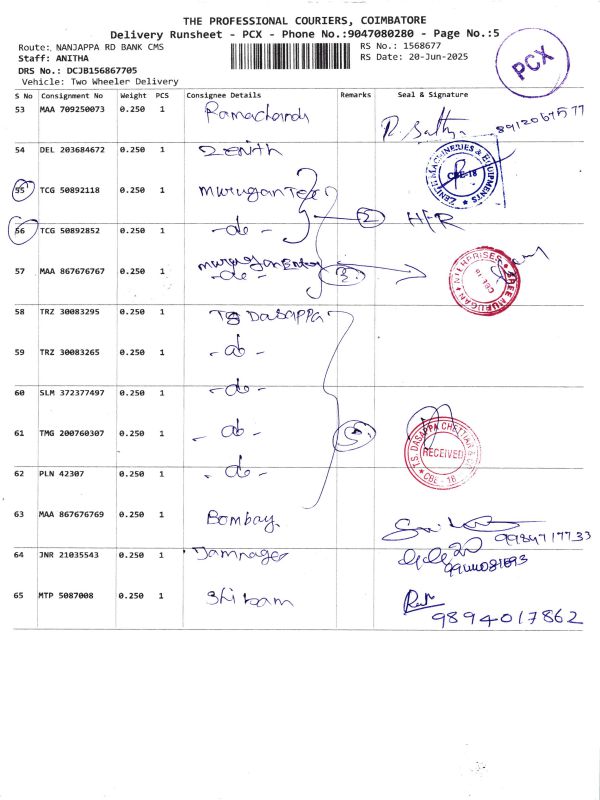 THE PROFESSIONAL COURIERS, COIMBATORE
Delivery Runsheet - PCX - Phone No.:9047080280 - Page No.:5
Route: NANJAPPA RD BANK CMS
RS No.: 1568677
Staff: ANITHA
RS Date: 20-Jun-2025
DRS No.: DCJB156867705
Vehicle: Two Wheeler Delivery
PCX
S No Consignment No Weight PCS Consignee Details Remarks Seal & Signature
53 MAA 709250073 0.250 1
54 DEL 203684672 0.250 1 Zenith
ZENITH MACHINERIES & EQUIPMENTS
CBE-18
55 TCG 50892118 0.250 1 Murugan Tex
2
56 TCG 50892852 0.250 1 -do-
57 MAA 867676767 0.250 1
-do-
3
SREE MURUGAN ENTERPRISES
CBE 18
58 TRZ 30083295 0.250 1 TS DASAPPA
59 TRZ 30083265 0.250 1 -do-
60 SLM 372377497 0.250 1 -do-
61 TMG 200760307 0.250 1 -do-
5
T.S. DASAPPA CHETTIAR &
RECEIVED
CBE - 18
62 PLN 42307 0.250 1 -do-
63 MAA 867676769 0.250 1 Bombay
64 JNR 21035543 0.250 1 Jamnagar
65 MTP 5087008 0.250 1
9894017862